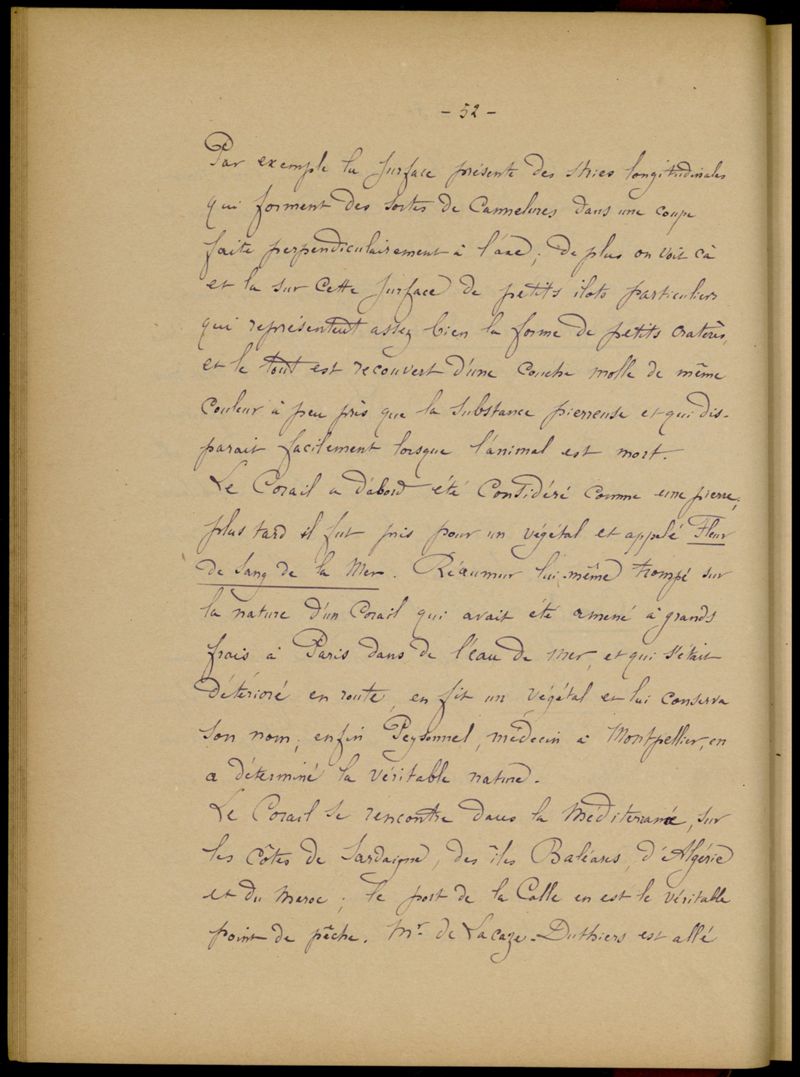 - 52 -
Par exemple la surface présente des stries longitudinales
qui forment des sortes de Cannelures dans une coupe
faite perpendiculairement à l'axe; De plus on voit cà
et là sur cette surface de petits ilots particuliers
qui représentent assez bien la forme de petits cratères,
et le tout est recouvert d'une couche molle de même
couleur à peu près que la substance pierreuse et qui dis-
parait facilement lorsque l'animal est mort.
Le Corail a d'abord été considéré comme une pierre;
plus tard il fut pris pour un végétal et appelé Fleur
de Sang de la Mer. Réaumur lui-même trompé sur
la nature d'un Corail qui avait été amené à grands
frais à Paris dans de l'eau de mer, et qui s'était
détérioré en route, en fit un végétal et lui conserva
son nom; enfin Peysonnel, médecin à Montpellier, en
a déterminé la véritable nature.
Le Corail se rencontre dans la Méditerranée, sur
les côtes de Sardaigne, des îles Baléares, d'Algérie
et du Maroc; le port de la Calle en est le véritable
point de pêche. Mr. de Lacaze-Duthiers est allé